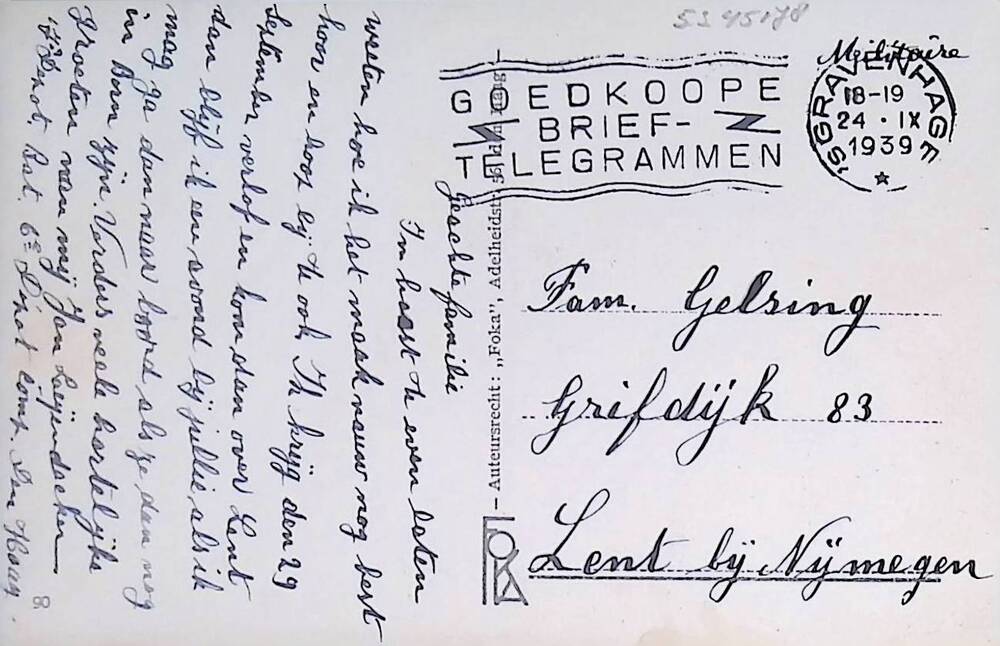 53 45178
Militaire
GOEDKOOPE
BRIEF-
TELEGRAMMEN
'SGRAVENHAGE
18-19
24 · IX
1939
Geachte familie
In haast te even laten
weten hoe ik het maak nauw nog best
hoor en hoop bij U ook. Ik krijg den 29
September verlof en kom dan over Lent
dan blijf ik een avond bij jullie als ik
mag Ja dan naar boord als ze dan nog
in Born zijn. Verders veele hartelijke
Groeten van mij Jan Leijendecker
1e Depot Bat. 6e Depot Comp. Den Haag
8.
– Auteursrecht: „Foka", Adelheidstr.
FOKA
Fam. Gelsing
Grifdijk 83
Lent bij Nijmegen